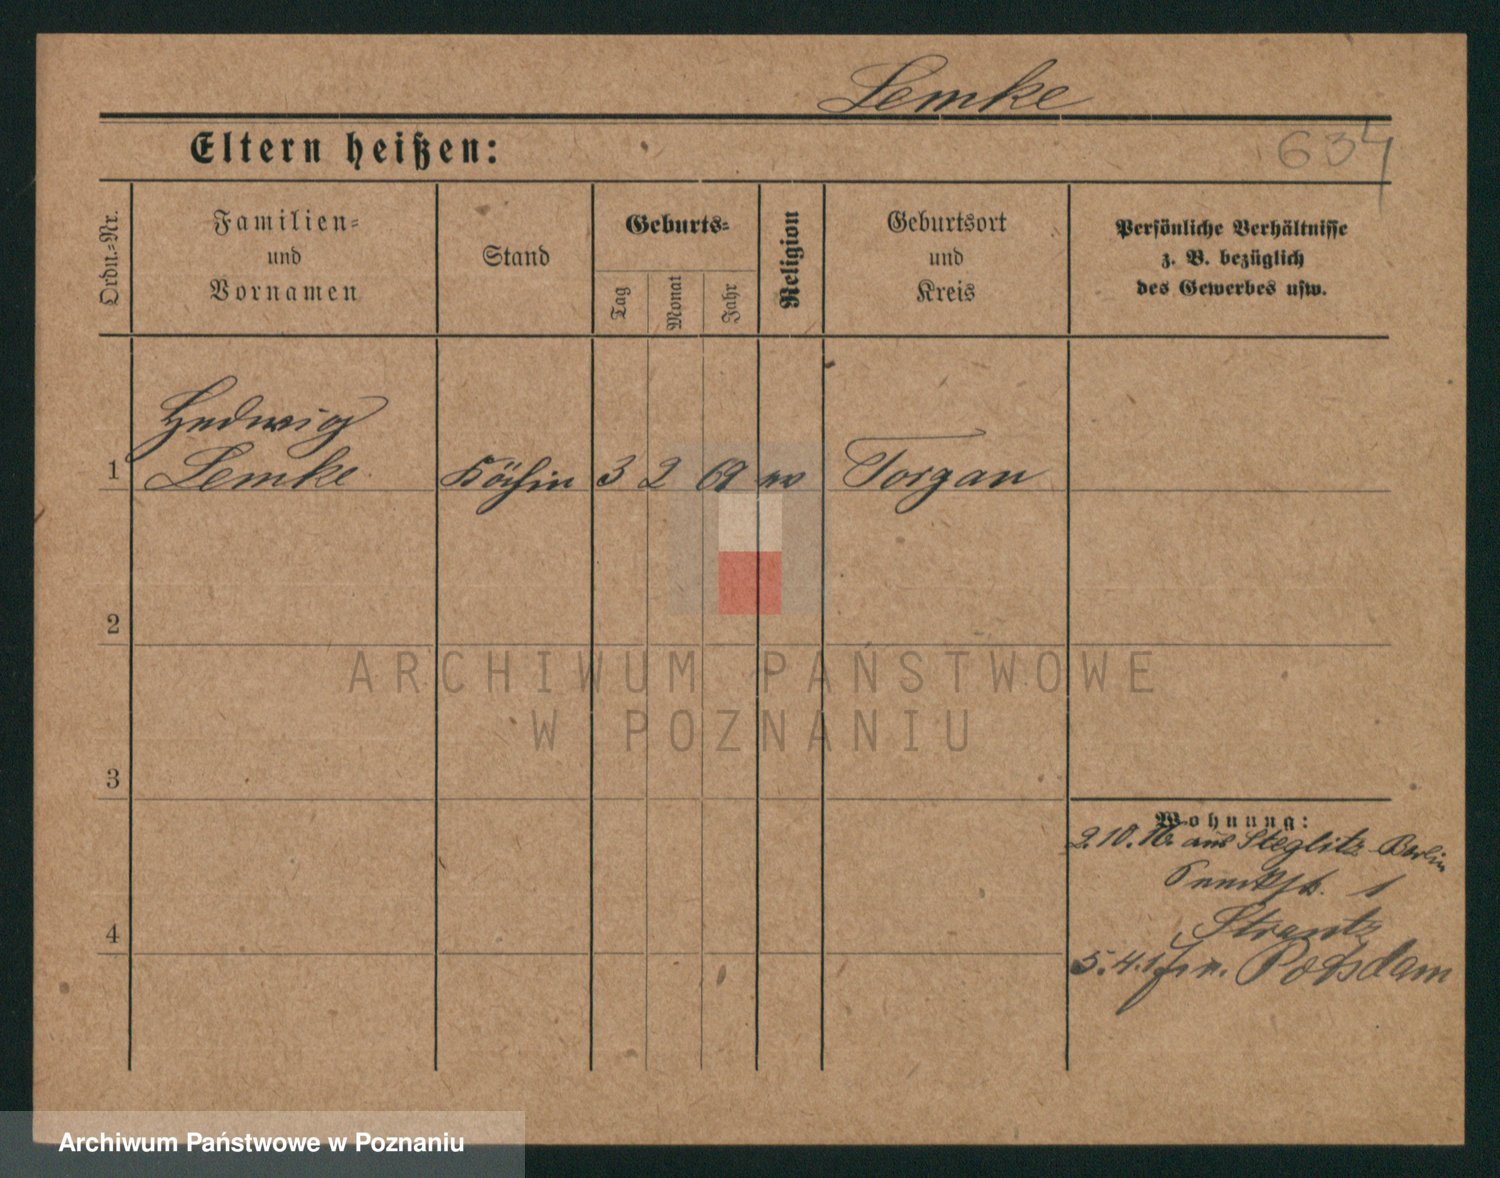 Lemke
Eltern heißen:
634
Ordn.-Nr.
Familien-
und
Vornamen
Stand
Geburts-
Tag
Monat
Jahr
Religion
Geburtsort
und
Kreis
Persönliche Verhältnisse
z. B. bezüglich
des Gewerbes usw.
Hedwig
1 Lemke Köchin 3 2 69 ev Torgau
2
3
4
Wohnung:
2.10.16 aus Steglitz-Berlin
1
Strantz
5.4.17 n. Potsdam
ARCHIWUM PAŃSTWOWE
W POZNANIU
Archiwum Państwowe w Poznaniu